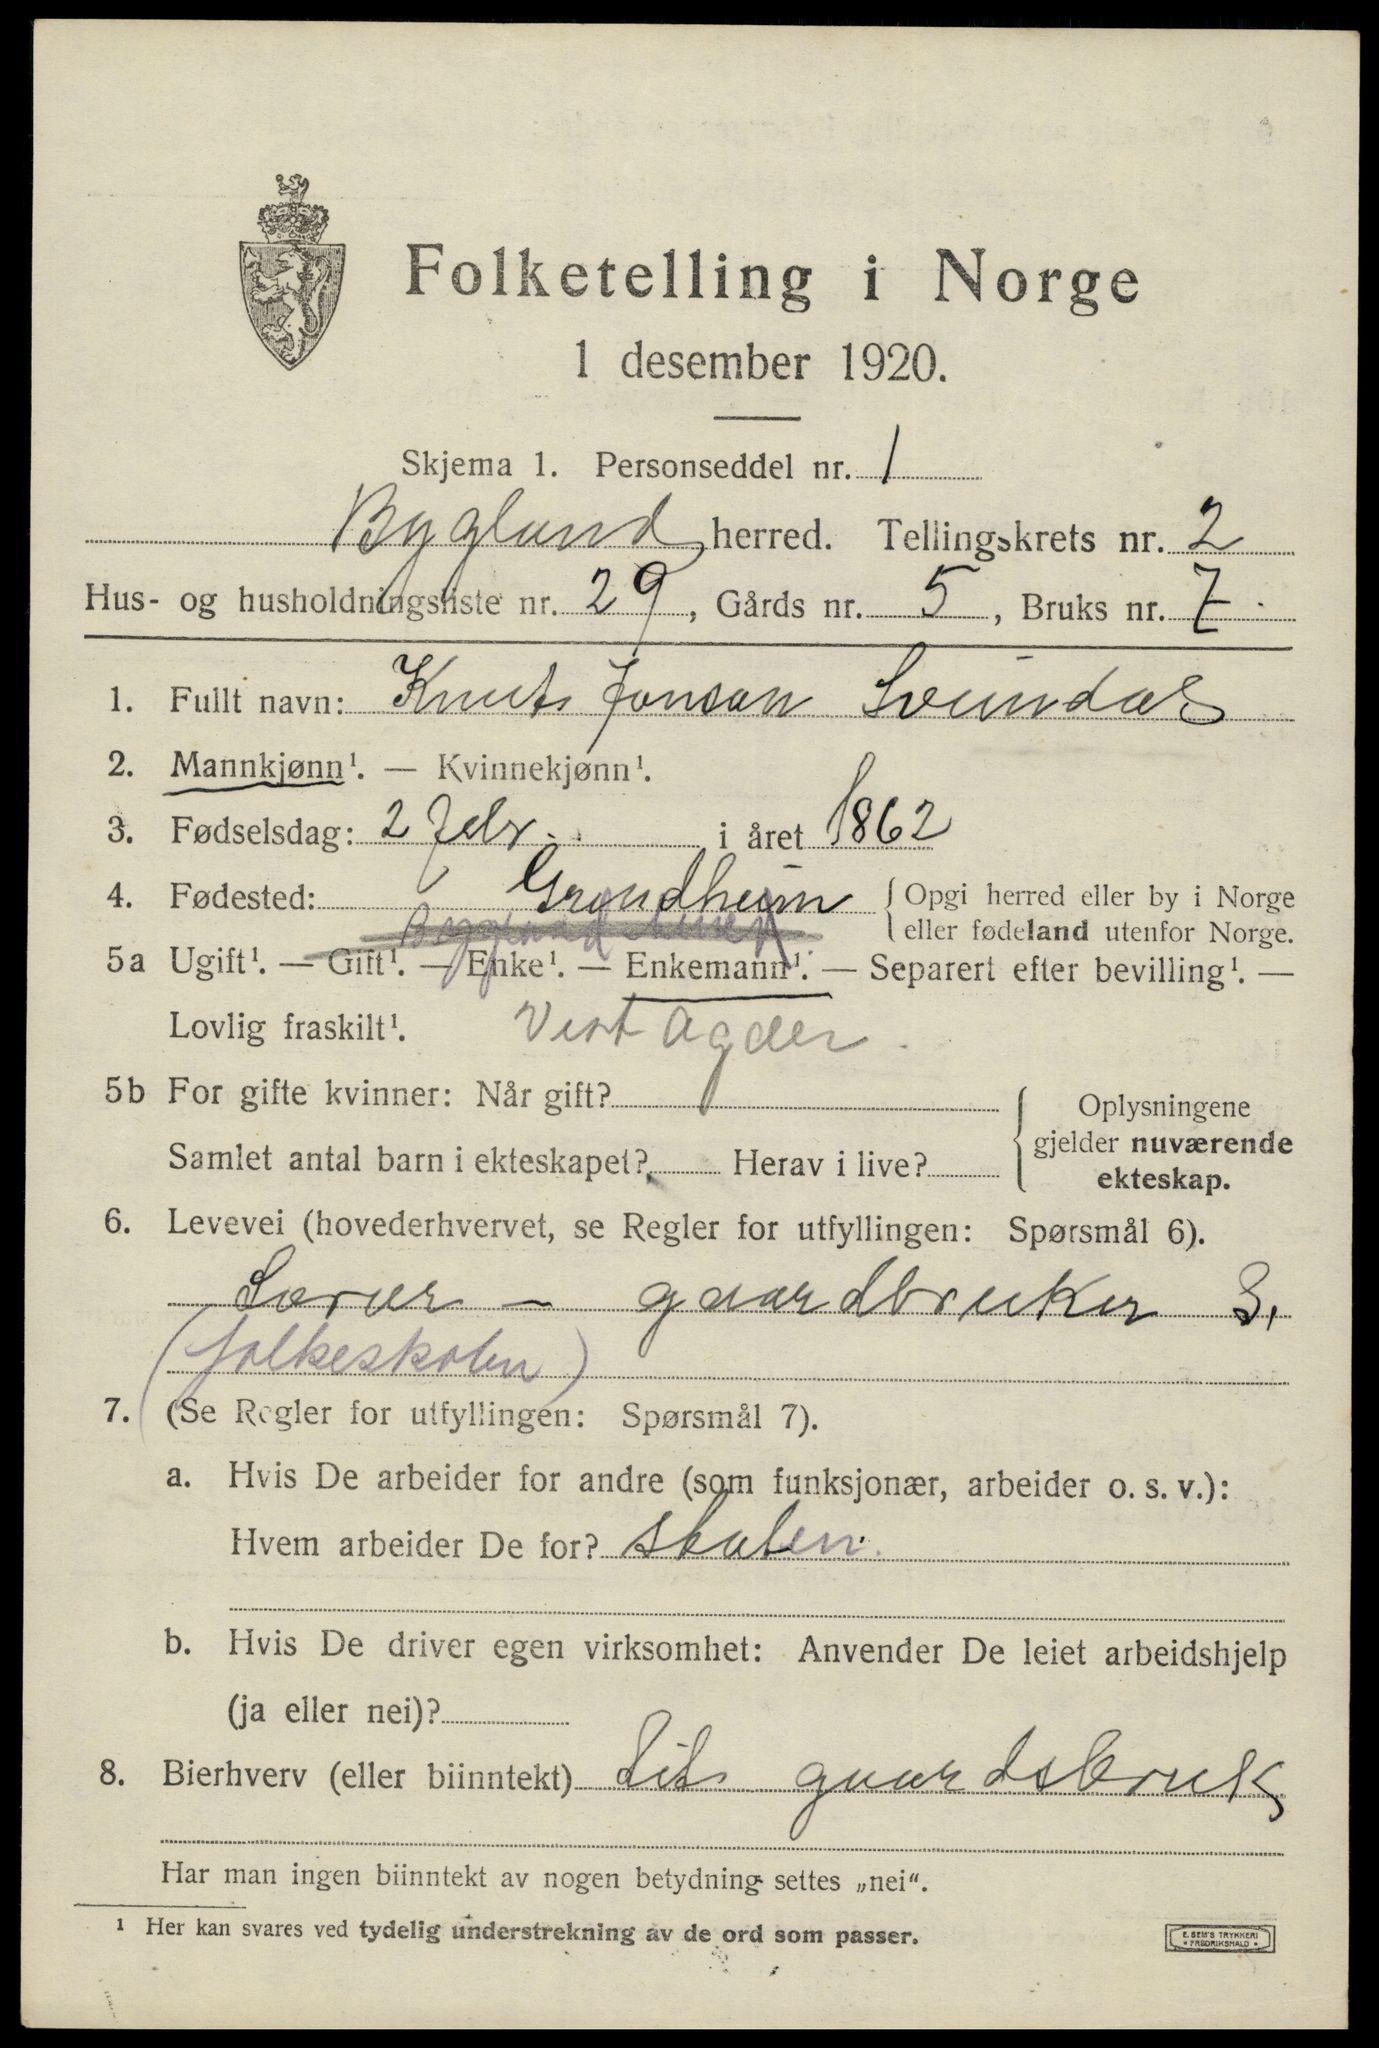 Folketelling i Norge
1 desember 1920.
Skjema 1. Personseddel nr. 1
Bygland herred. Tellingskrets nr. 2
Hus- og husholdningsliste nr. 29, Gårds nr. 5, Bruks nr. 7
1. Fullt navn: Knut Jonson Sveindal
2. Mannkjønn¹. — Kvinnekjønn¹.
3. Fødselsdag: 2 febr. i året 1862
4. Fødested: Grindheim { Opgi herred eller by i Norge
eller fødeland utenfor Norge.
Bygland
5a Ugift¹. — Gift¹. — Enke¹. — Enkemann¹. — Separert efter bevilling¹. —
Lovlig fraskilt¹. Vest Agder.
5b For gifte kvinner: Når gift? { Oplysningene
gjelder nuværende
Samlet antal barn i ekteskapet? Herav i live?
ekteskap.
6. Levevei (hovederhvervet, se Regler for utfyllingen: Spørsmål 6).
Lærer — gaardbruker S.
(folkeskolen)
7. (Se Regler for utfyllingen: Spørsmål 7).
a. Hvis De arbeider for andre (som funksjonær, arbeider o. s. v.):
Hvem arbeider De for? staten.
b. Hvis De driver egen virksomhet: Anvender De leiet arbeidshjelp
(ja eller nei)?
8. Bierhverv (eller biinntekt) Lit gaardsbruk
Har man ingen biinntekt av nogen betydning settes „nei“.
¹ Her kan svares ved tydelig understrekning av de ord som passer.
E. SEM'S TRYKKERI
* FREDRIKSHALD *